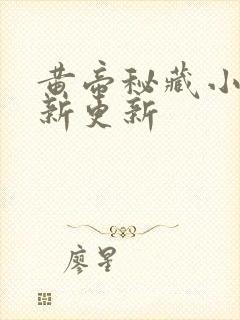 黄帝秘藏小
新更新
廖星